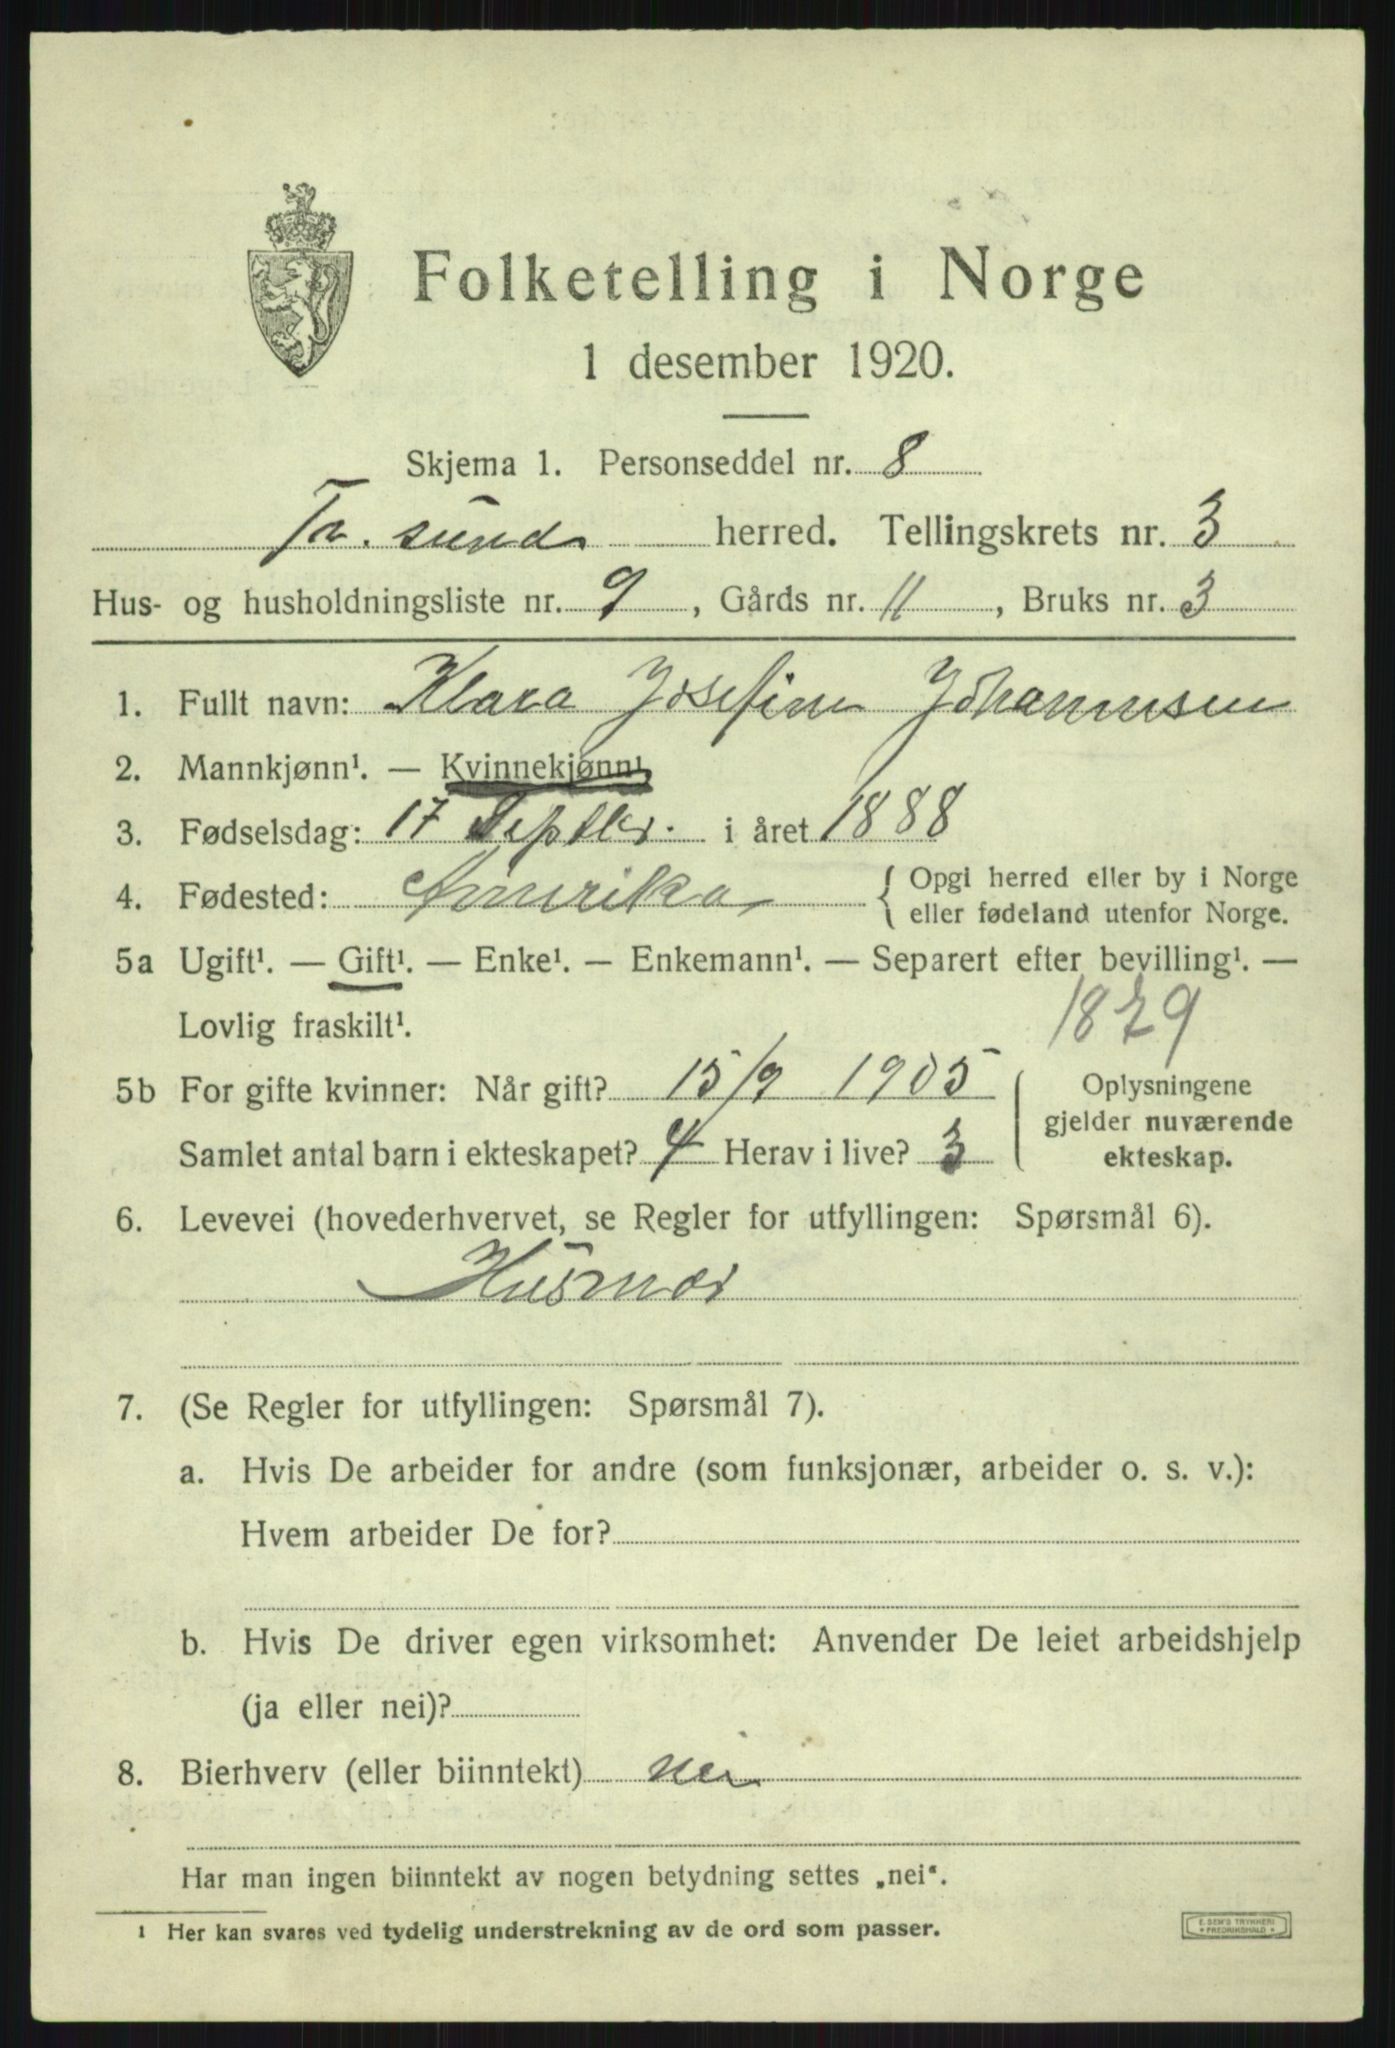 Folketelling i Norge
1 desember 1920.
Skjema 1. Personseddel nr. 8
Tr. sund herred. Tellingskrets nr. 3
Hus- og husholdningsliste nr. 9, Gårds nr. 11, Bruks nr. 3
1. Fullt navn: Klara Josefine Johannesen
2. Mannkjønn¹. — Kvinnekjønn¹
3. Fødselsdag: 17 Septbr. i året 1888
4. Fødested: Amerika { Opgi herred eller by i Norge
eller fødeland utenfor Norge.
5a Ugift¹. — Gift¹. — Enke¹. — Enkemann¹. — Separert efter bevilling¹. —
Lovlig fraskilt¹. 1879
5b For gifte kvinner: Når gift? 15/9 1905
Samlet antal barn i ekteskapet? 4 Herav i live? 3
Oplysningene
gjelder nuværende
ekteskap.
6. Levevei (hovederhvervet, se Regler for utfyllingen: Spørsmål 6).
Husmor
7. (Se Regler for utfyllingen: Spørsmål 7).
a. Hvis De arbeider for andre (som funksjonær, arbeider o. s. v.):
Hvem arbeider De for?
b. Hvis De driver egen virksomhet: Anvender De leiet arbeidshjelp
(ja eller nei)?
8. Bierhverv (eller biinntekt) nei
Har man ingen biinntekt av nogen betydning settes „nei“.
¹ Her kan svares ved tydelig understrekning av de ord som passer.
E. SEM'S TRYKKERI
* FREDRIKSHALD *